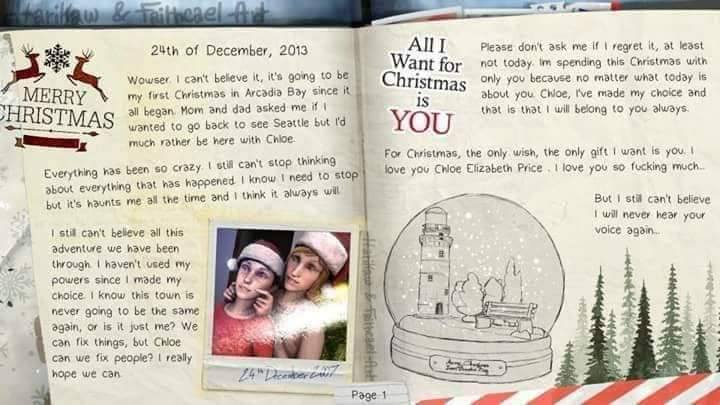 Harikaw & Faithcael Art
24th of December, 2013
MERRY
CHRISTMAS
Wowser. I can't believe it, it's going to be
my first Christmas in Arcadia Bay since it
all began. Mom and dad asked me if I
wanted to go back to see Seattle but I'd
much rather be here with Chloe.
Everything has been so crazy. I still can't stop thinking
about everything that has happened. I know I need to stop
but it's haunts me all the time and I think it always will.
I still can't believe all this
adventure we have been
through. I haven't used my
powers since I made my
choice. I know this town is
never going to be the same
again, or is it just me? We
can fix things, but Chloe
can we fix people? I really
hope we can.
24th December 2007
All I
Want for
Christmas
is
YOU
Please don't ask me if I regret it, at least
not today. Im spending this Christmas with
only you because no matter what today is
about you. Chloe, I've made my choice and
that is that I will belong to you always.
For Christmas, the only wish, the only gift I want is you. I
love you Chloe Elizabeth Price . I love you so fucking much...
But I still can't believe
I will never hear your
voice again...
Harikaw & Faithcael Art
Page 1